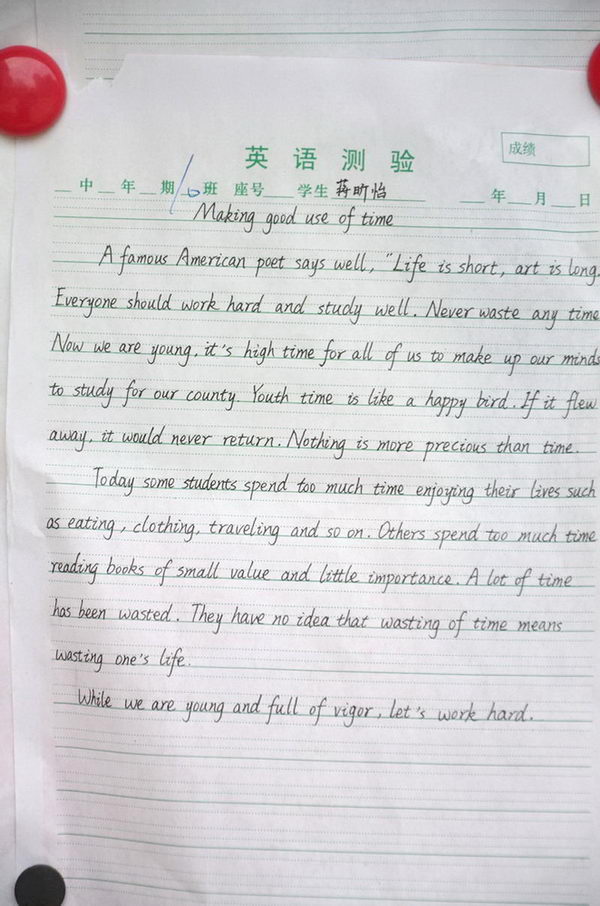 英语测验
成绩
中 年 期 10 班 座号 学生 蒋昕怡 年 月 日
Making good use of time
A famous American poet says well, "Life is short, art is long.
Everyone should work hard and study well. Never waste any time
Now we are young, it's high time for all of us to make up our minds
to study for our county. Youth time is like a happy bird. If it flew
away, it would never return. Nothing is more precious than time.
Today some students spend too much time enjoying their lives such
as eating, clothing, traveling and so on. Others spend too much time
reading books of small value and little importance. A lot of time
has been wasted. They have no idea that wasting of time means
wasting one's life.
While we are young and full of vigor, let's work hard.